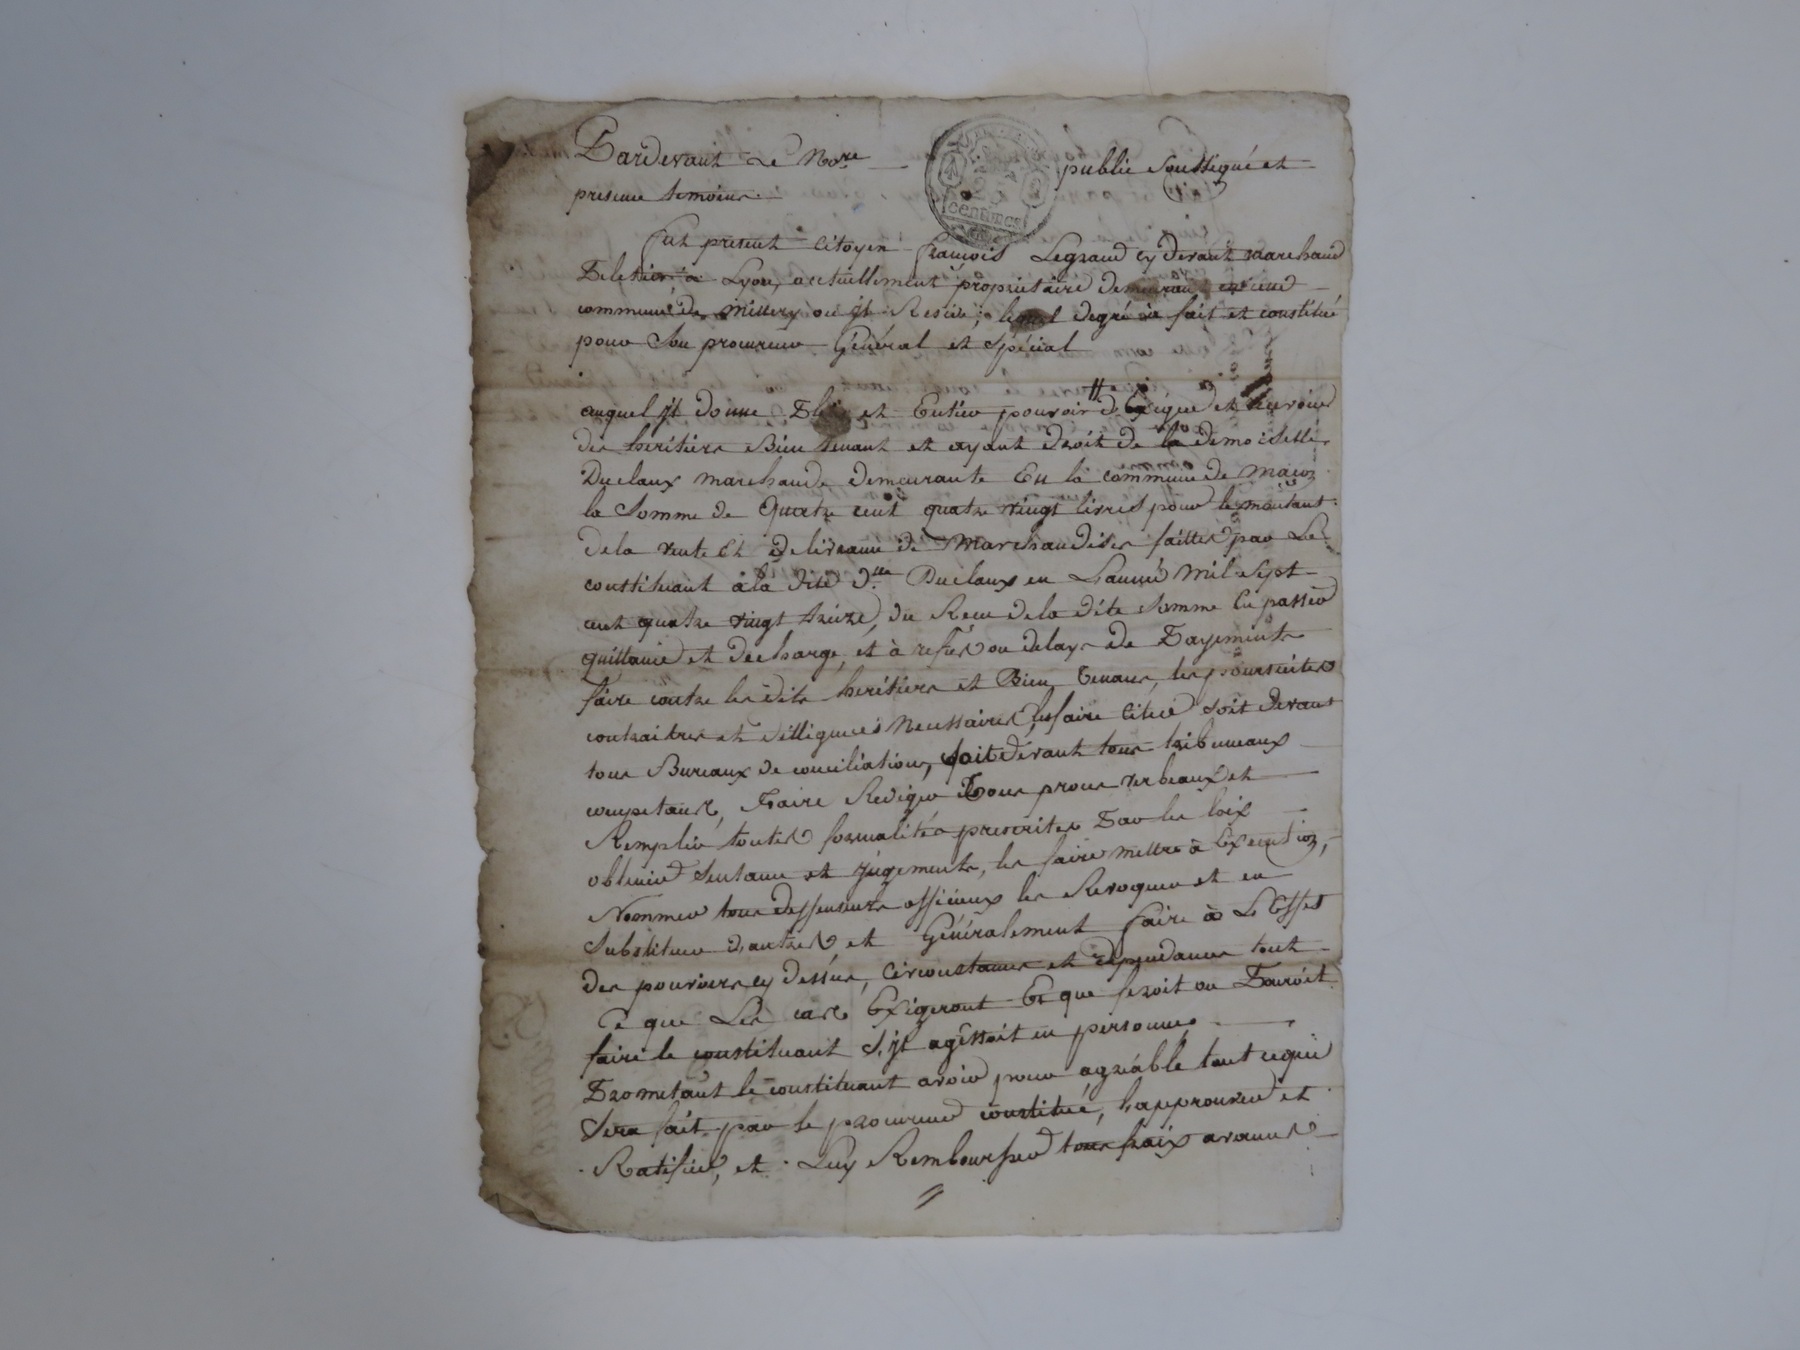 Pardevant le No.re public soussigné et
presence temoins.
25
centimes
fut present Citoyen françois Legrand cy devant marchand
Peletier a Lyon, actuellement proprietaire demeurant en cette
commune de millery ou jl Reside; lequel de gré a fait et constitué
pour Son procureur Général et Spécial
auquel jl donne Plein et Entier pouvoir d'Exiger et recevoir
des heritiers Bien tenant et ayant droit de la demoiselle
Duclaux marchande demeurante En la commune de macon
la Somme de Quatre cent quatre vingt livres pour le montant
de la vente Et delivrance de Marchandises faittes par Le
constituant à la dite D.lle Duclaux en L'année Mil Sept
cent quatre vingt treize, du Recu de la dite Somme En passer
quittance et decharge, et à refus ou delays de Payements
faire contre les dits heritiers et Bien tenans, les poursuites
contraintes et dilligences Necessaires, les faire Citer soit devant
tous Bureaux de conciliation, soit devant tous tribuneaux
competans, Faire Rediger Tous proces verbeaux et
Remplir toutes formalités prescrites Par les loix
obtenir Sentance et jugements, les faire mettre à Execution,
Nommer tous deffenseurs officieux les Revoquer et en
Substituer d'autres et Généralement faire à L'Effet
des pouvoirs cy dessus, Circonstances et dependances tout
Ce que Les cas Exigeront Et que feroit ou Pouroit
faire le constituant S'jl agissoit en personne
Prometant le constituant avoir pour agréable tout ce qui
Sera fait par le procureur constitué, l'approuver et
Ratifier, et Luy Rembourser tous fraix avances